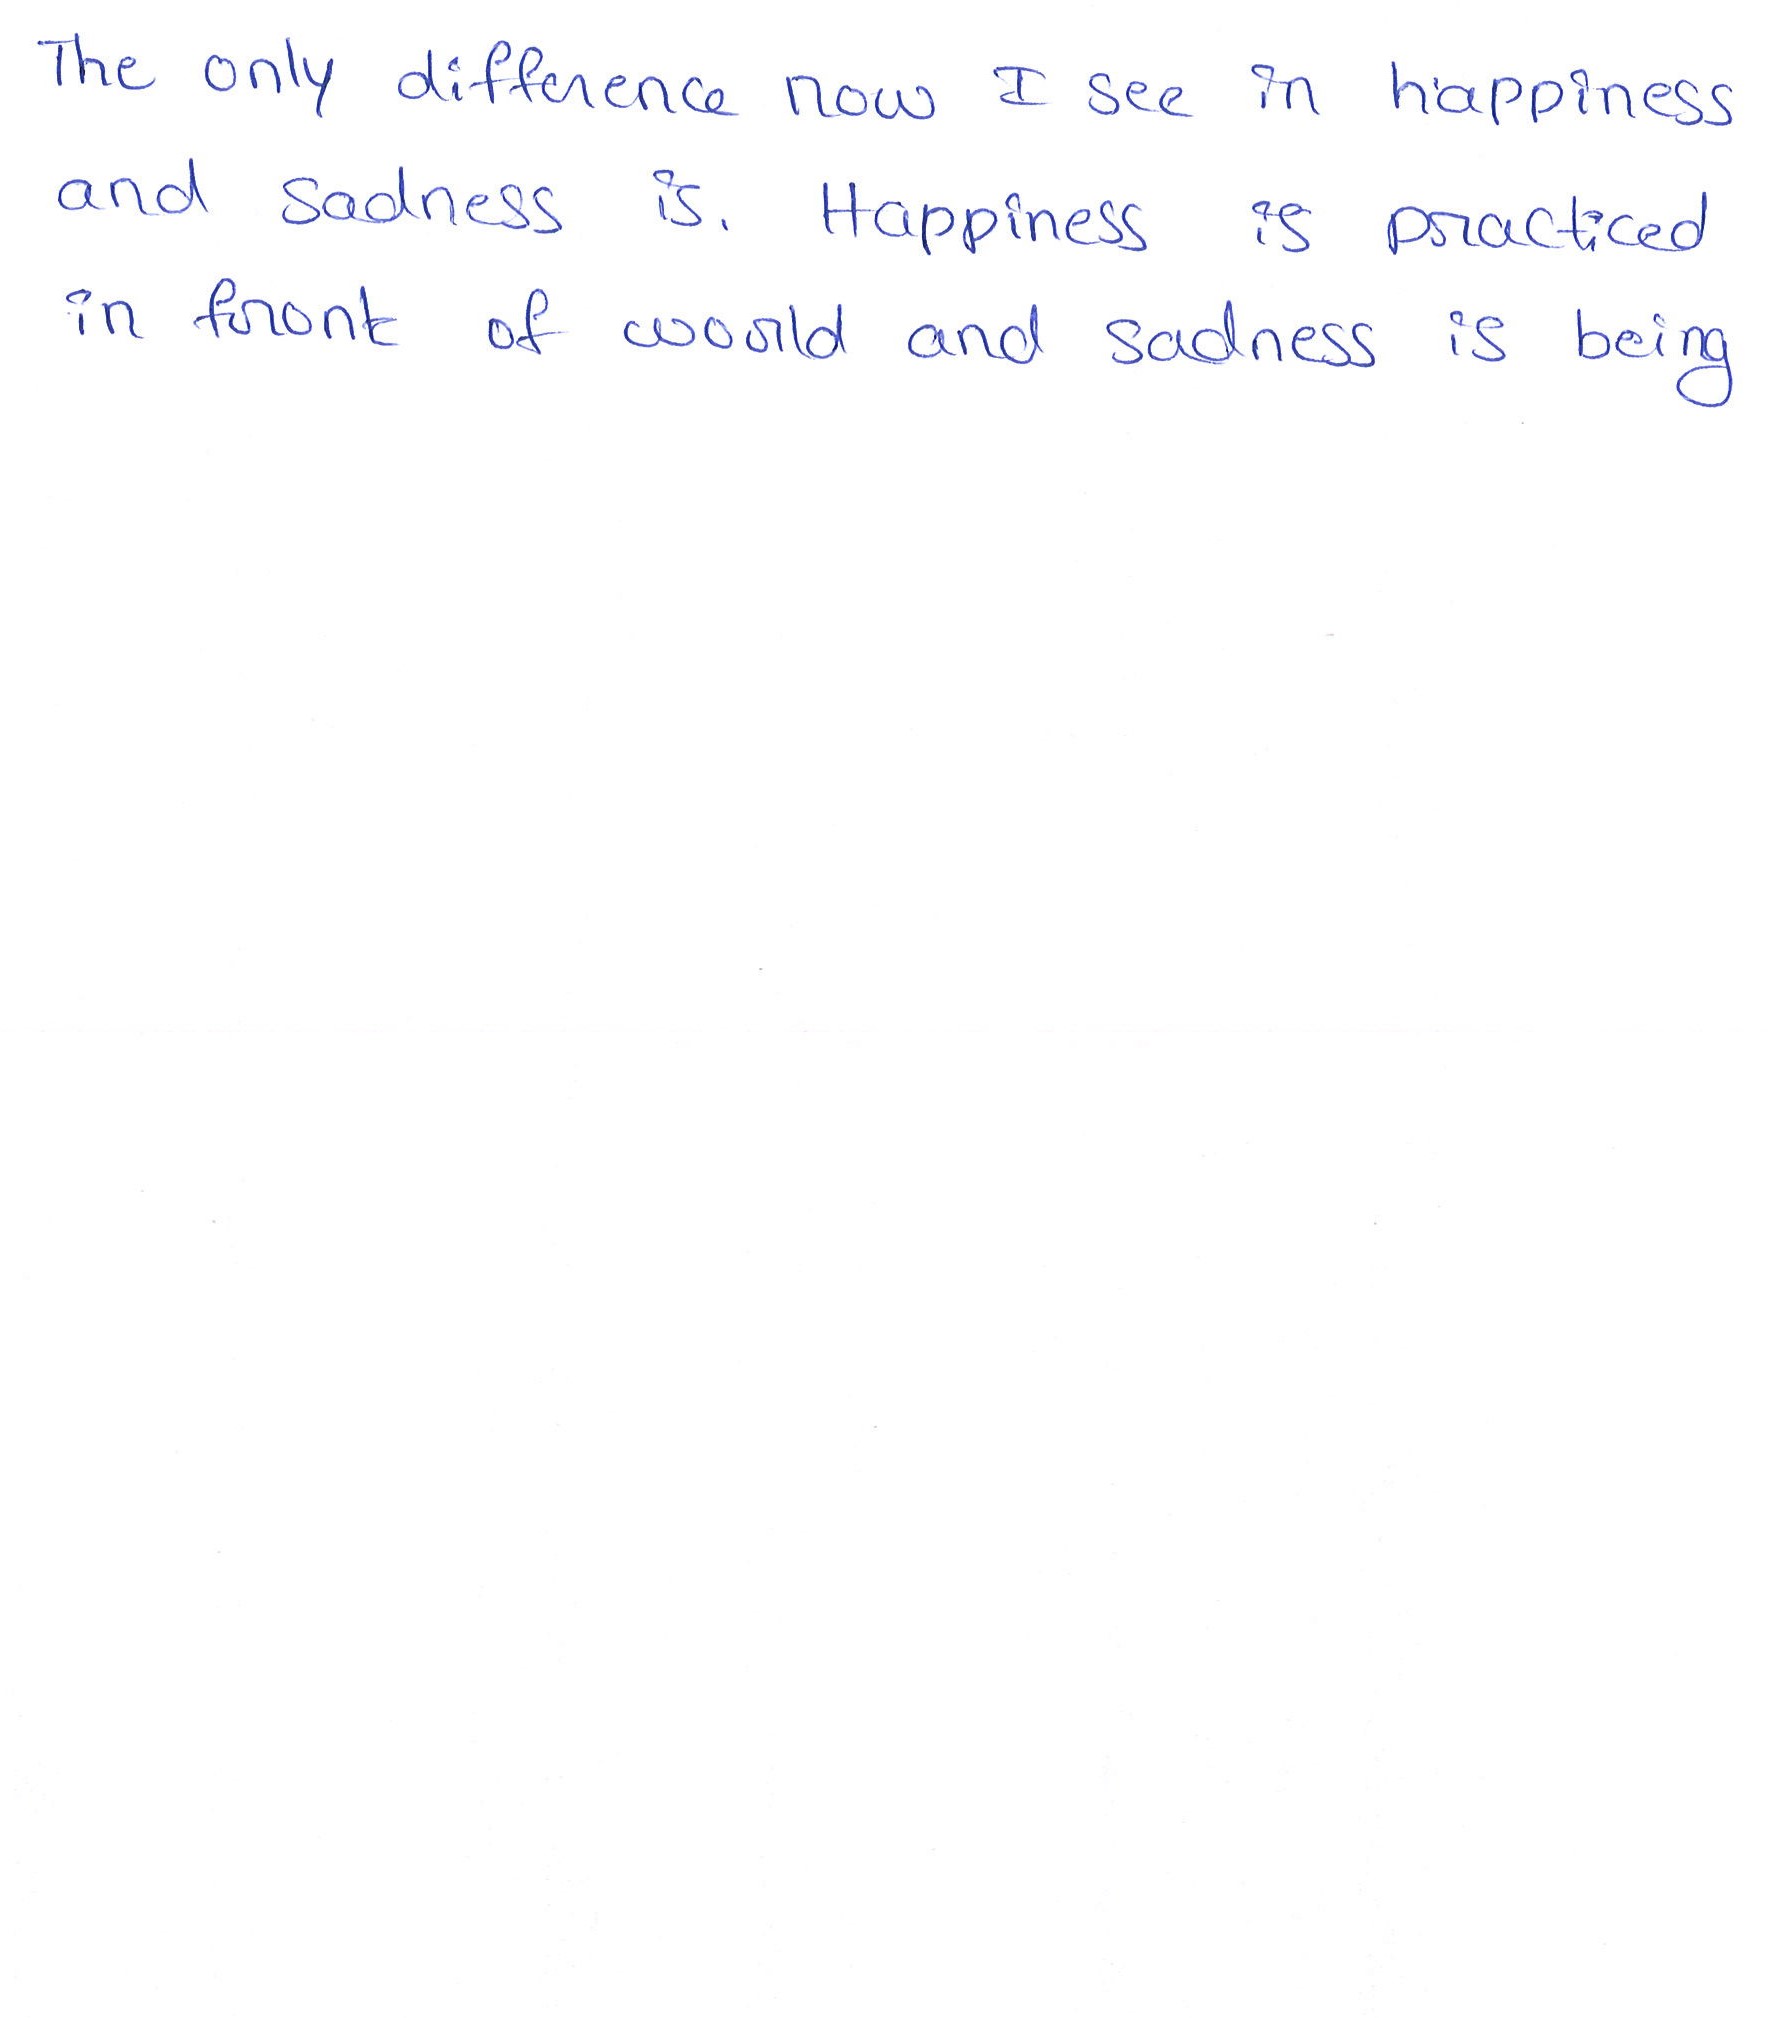 The only difference now I see in happiness
and sadness is. Happiness is practiced
in front of woorld and sadness is being